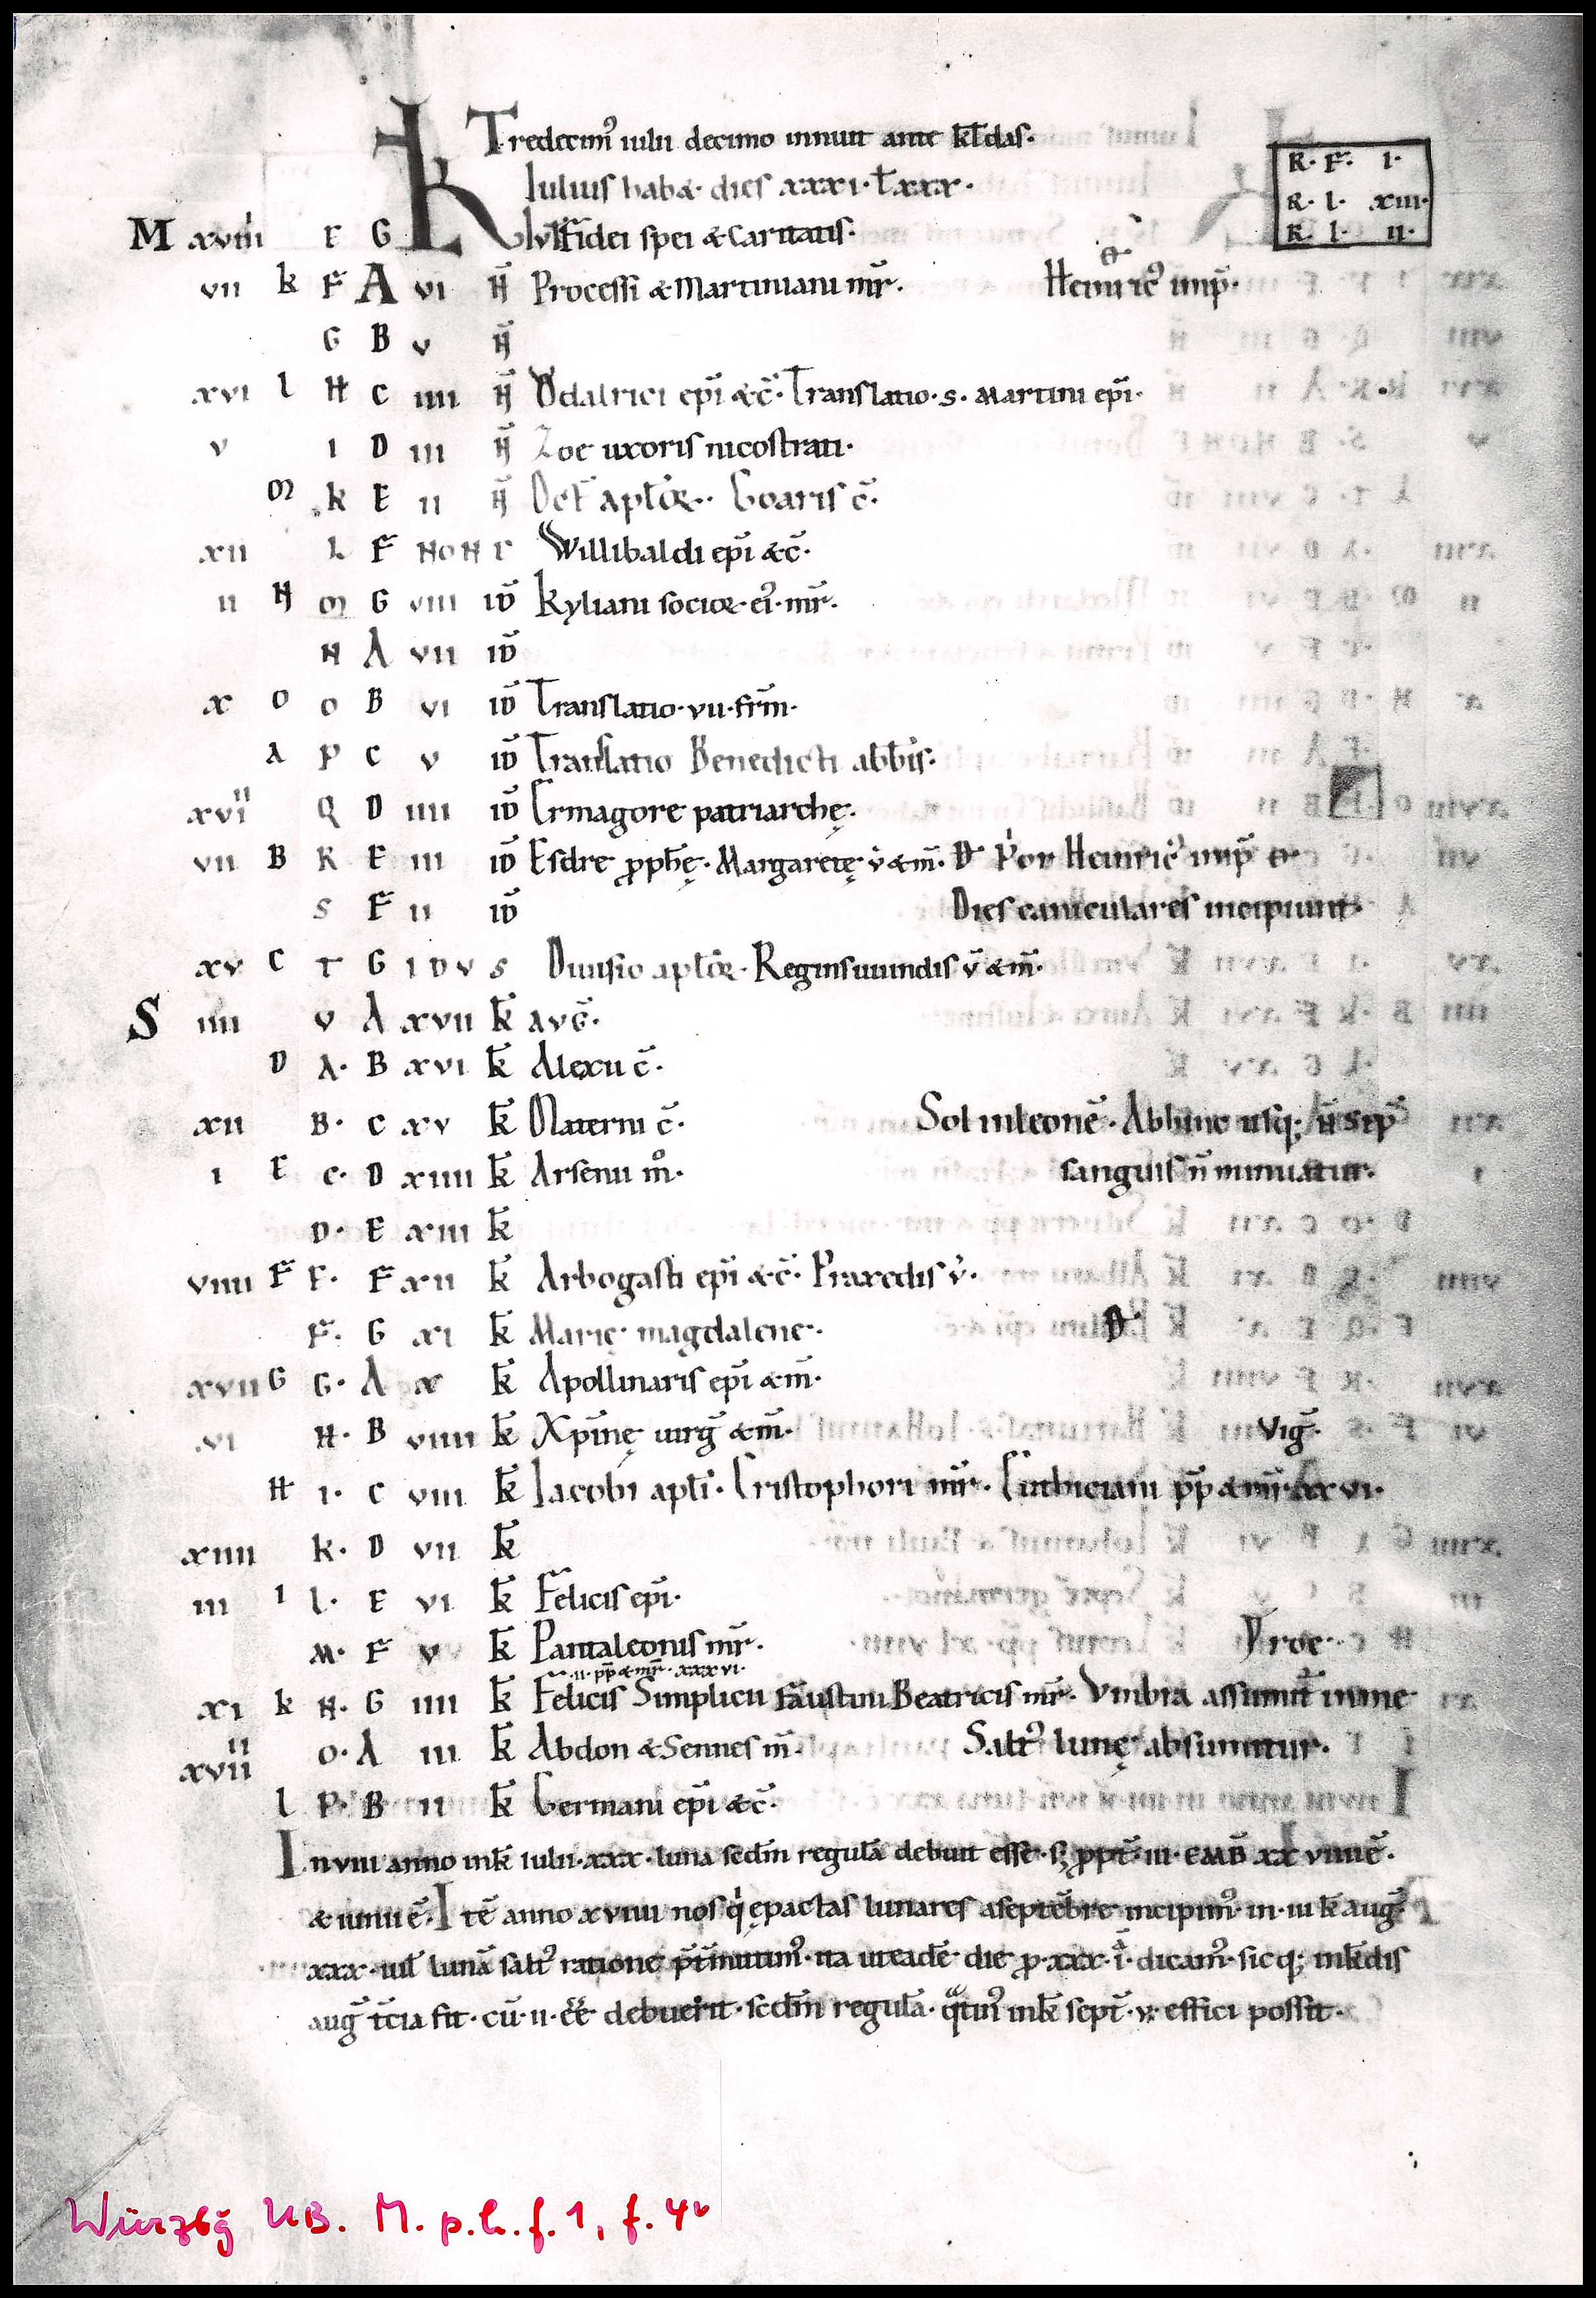 Tredecim⁹ iulii decimo innuit ante kl̄das.
R. F. I.
Iulius habꝫ dies xxxi. l̄ xxx.
R. I. xiii.
M xviiii E G KL IVL̄ Fidei spei & Caritatis.
R. I. ii.
vii k F A vi N̄ Processi & Martiniani mr̄. Heinric⁹ imp̄.
G B v N̄
xvi l H C iiii N̄ Ǒdalrici ep̄i &c̄. Translatio . s. Martini ep̄i.
v I D iii N̄ Zoe uxoris nicostrati.
m k E ii N̄ Oct̄ apl̄oꝝ. Goaris c̄.
xii L F NON E Willibaldi ep̄i &c̄.
ii N m G viii ID̄ Kyliani socioꝝ ei⁹ mr̄.
N A vii ID̄
x o o B vi ID̄ Translatio . vii . fr̄m.
A P C v ID̄ Translatio Benedicti abb̄is.
xviii Q D iiii ID̄ Ermagore patriarchę.
vii B R E iii ID̄ Esdre ꝓph̄ę. Margaretę v̄ & m̄. Heinric⁹ imp̄
S F ii ID̄ Dies caniculares incipiunt.
xv C T G IDVS Diuisio apl̄oꝝ. Reginsuuindis v̄ & m̄.
S iiii V A xvii k̄ AVḠ.
D A. B xvi k̄ Alexii c̄.
xii B. C xv k̄ Materni c̄. Sol in leonē. Abhinc usq; n̄ sep̄
i E C. D xiiii k̄ Arsenii m̊. sanguis n̄ minuatur.
D. E xiii k̄
viiii F E. F xii k̄ Arbogasti ep̄i &c̄. Praxedis v̄.
F. G xi k̄ Marię magdalene. D.
xvii G G. A x k̄ Apollinaris ep̄i & m̄.
vi H. B viiii k̄ Xp̄inę uirḡ & m̄. Viḡ.
H I. C viii k̄ Iacobi apl̄i. Cristophori mr̄. pp̄ & mr̄ xxvi.
xiiii K. D vii k̄
iii I L. E vi k̄ Felicis ep̄i.
M. F v k̄ Pantaleonis mr̄.
.ii. pp̄ & mr̄. xxxvi.
xi k N. G iiii k̄ Felicis Simplicii Faustini Beatricis mr̄. Vmbra assumit̄ inine
xviiii O. A iii k̄ Abdon & Sennes m̄. Salt⁹ lunę absumitur.
l P. B ii k̄ Germani ep̄i &c̄.
In viii anno in k̄ iulii . xxx . luna sedm̄ regulā debuit esse . sꝫ ꝓpt̄ . iii . EMB̄ xx viiii ē.
& uniu ē. Itē anno xviiii nos q̇ epactas lunares a septēbre incipim⁹ . in . iii k̄ auḡ
xxx . iul̄ lunā salt⁹ ratione p̄t̄mittim⁹ . ita ut eadē die ꝓ . xxx . i̇ . dicam⁹ . sicq; in k̄dis
auḡ t̄cia fit . cū . ii . ee̅ debuerit . sedm̄ regulā . q̊tin⁹ in k̄ sept̄ . v . effici possit.
Würzbg UB. M. p. h. f. 1, f. 4v